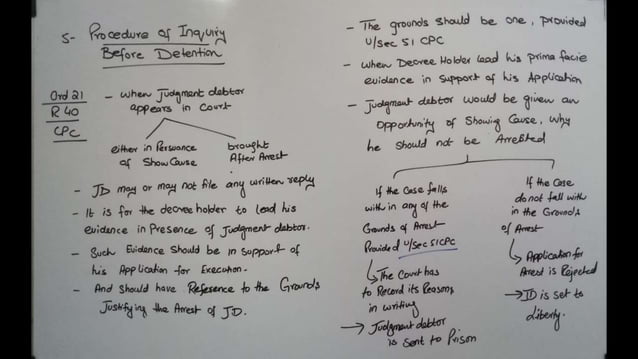 5- Procedure of Inquiry
Before Detention
Ord 21
R 40
CPC
- when Judgment debtor
appears in Court
either in Persuance
of Show Cause
brought
After Arrest
- JD may or may not file any written reply
- It is for the decree holder to lead his
evidence in Presence of Judgment debtor.
- Such Evidence should be in Support of
his Application for Execution.
- And should have Reference to the Grounds
Justifying the Arrest of JD.
- The grounds should be one, provided
U/sec 51 CPC
- when Decree Holder lead his prima facie
evidence in support of his Application
- Judgment debtor would be given an
Opportunity of Showing Cause, why
he should not be Arrested
If the Case falls
with in any of the
Grounds of Arrest
Provided U/sec 51 CPC
The Court has
to Record its Reasons
in writing
Judgment debtor
is sent to Prison
If the Case
do not fall with
in the Grounds
of Arrest
Application for
Arrest is Rejected
JD is set to
liberty.